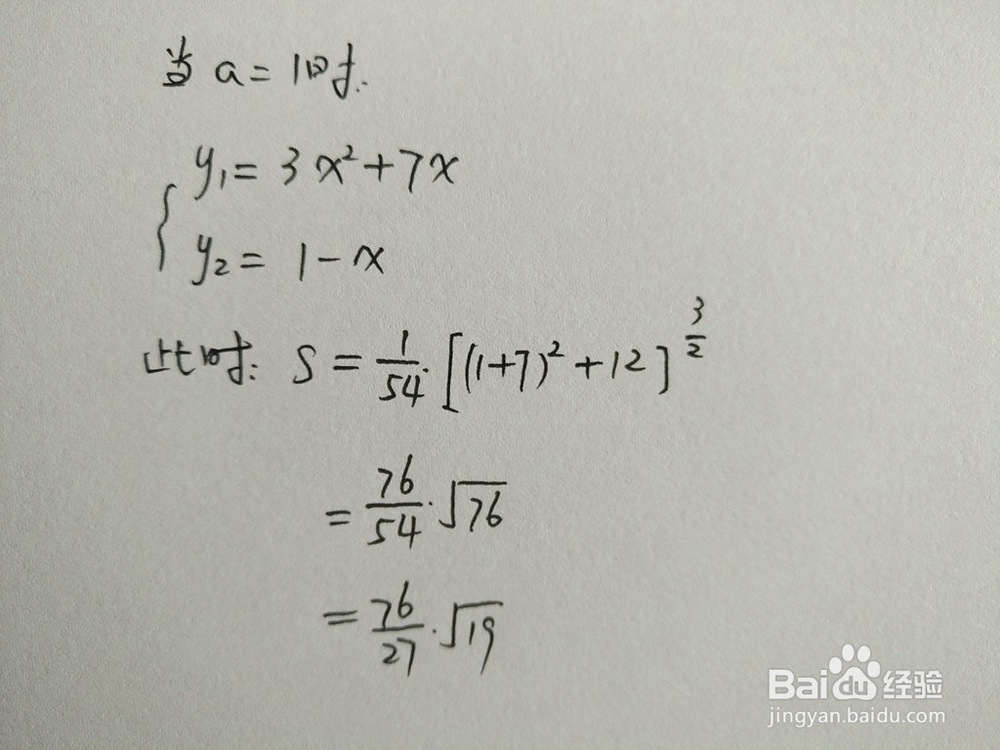 当 a = 1时.
y₁ = 3x² + 7x
y₂ = 1 - x
此时: S = 1/54 · [(1+7)² + 12]^(3/2)
= 76/54 · √76
= 76/27 · √19
Baidu 经验
jingyan.baidu.com